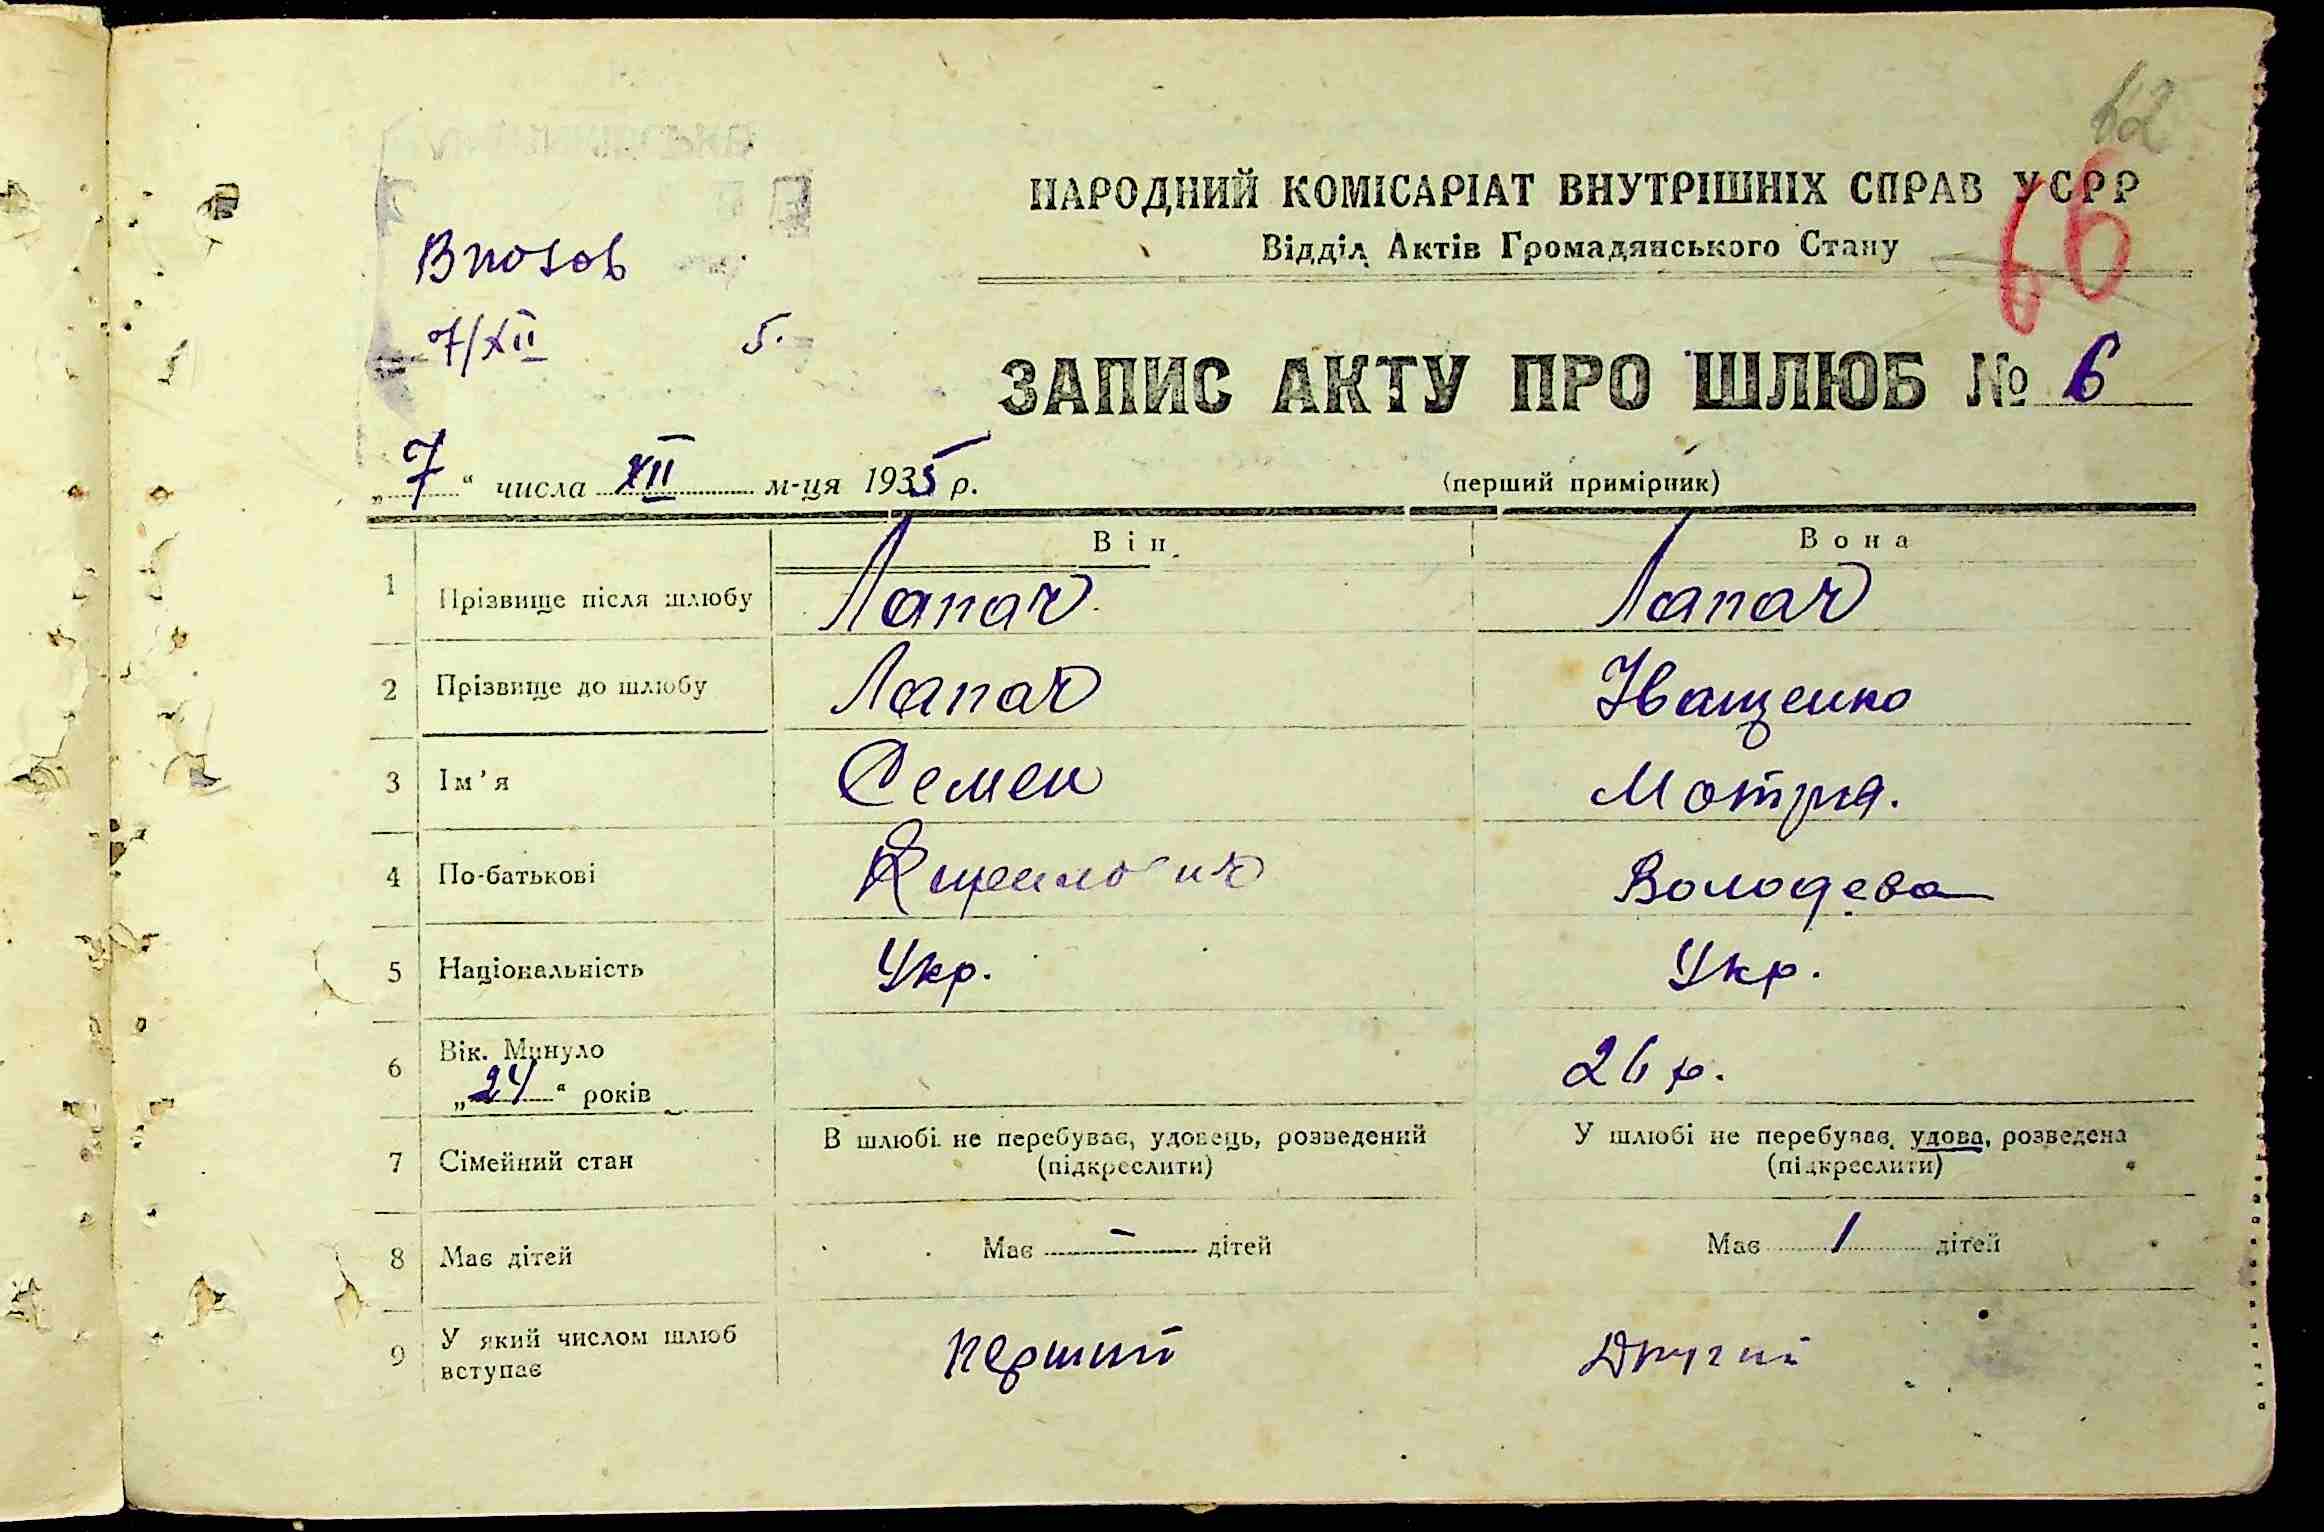 62
НАРОДНИЙ КОМІСАРІАТ ВНУТРІШНІХ СПРАВ УСРР
66
Відділ Актів Громадянського Стану
7/XII 5.
ЗАПИС АКТУ ПРО ШЛЮБ № 6
„7“ числа XII м-ця 1935 р.
(перший примірник)
Він Вона
1 Прізвище після шлюбу Лапач Лапач
2 Прізвище до шлюбу Лапач Іващенко
3 Ім'я Семен Мотря.
4 По-батькові
5 Національність Укр. Укр.
6 Вік. Минуло 26 р.
„24“ років
7 Сімейний стан В шлюбі не перебуває, удовець, розведений У шлюбі не перебуває, удова, розведена
(підкреслити) (підкреслити)
8 Має дітей Має - дітей Має 1 дітей
9 У який числом шлюб вступає перший Другий